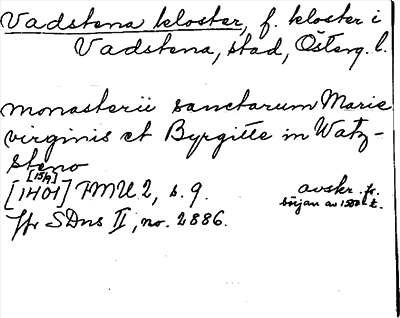 Vadstena kloster, f. kloster i
Vadstena, stad, Österg. l.
monasterii sanctarum Marie
virginis et Byrgitte in Watz-
steno
[15/9]
[1401] FMU 2, s. 9. avskr. fr.
början av 1500-t.
Jfr SDns II, no. 2886.